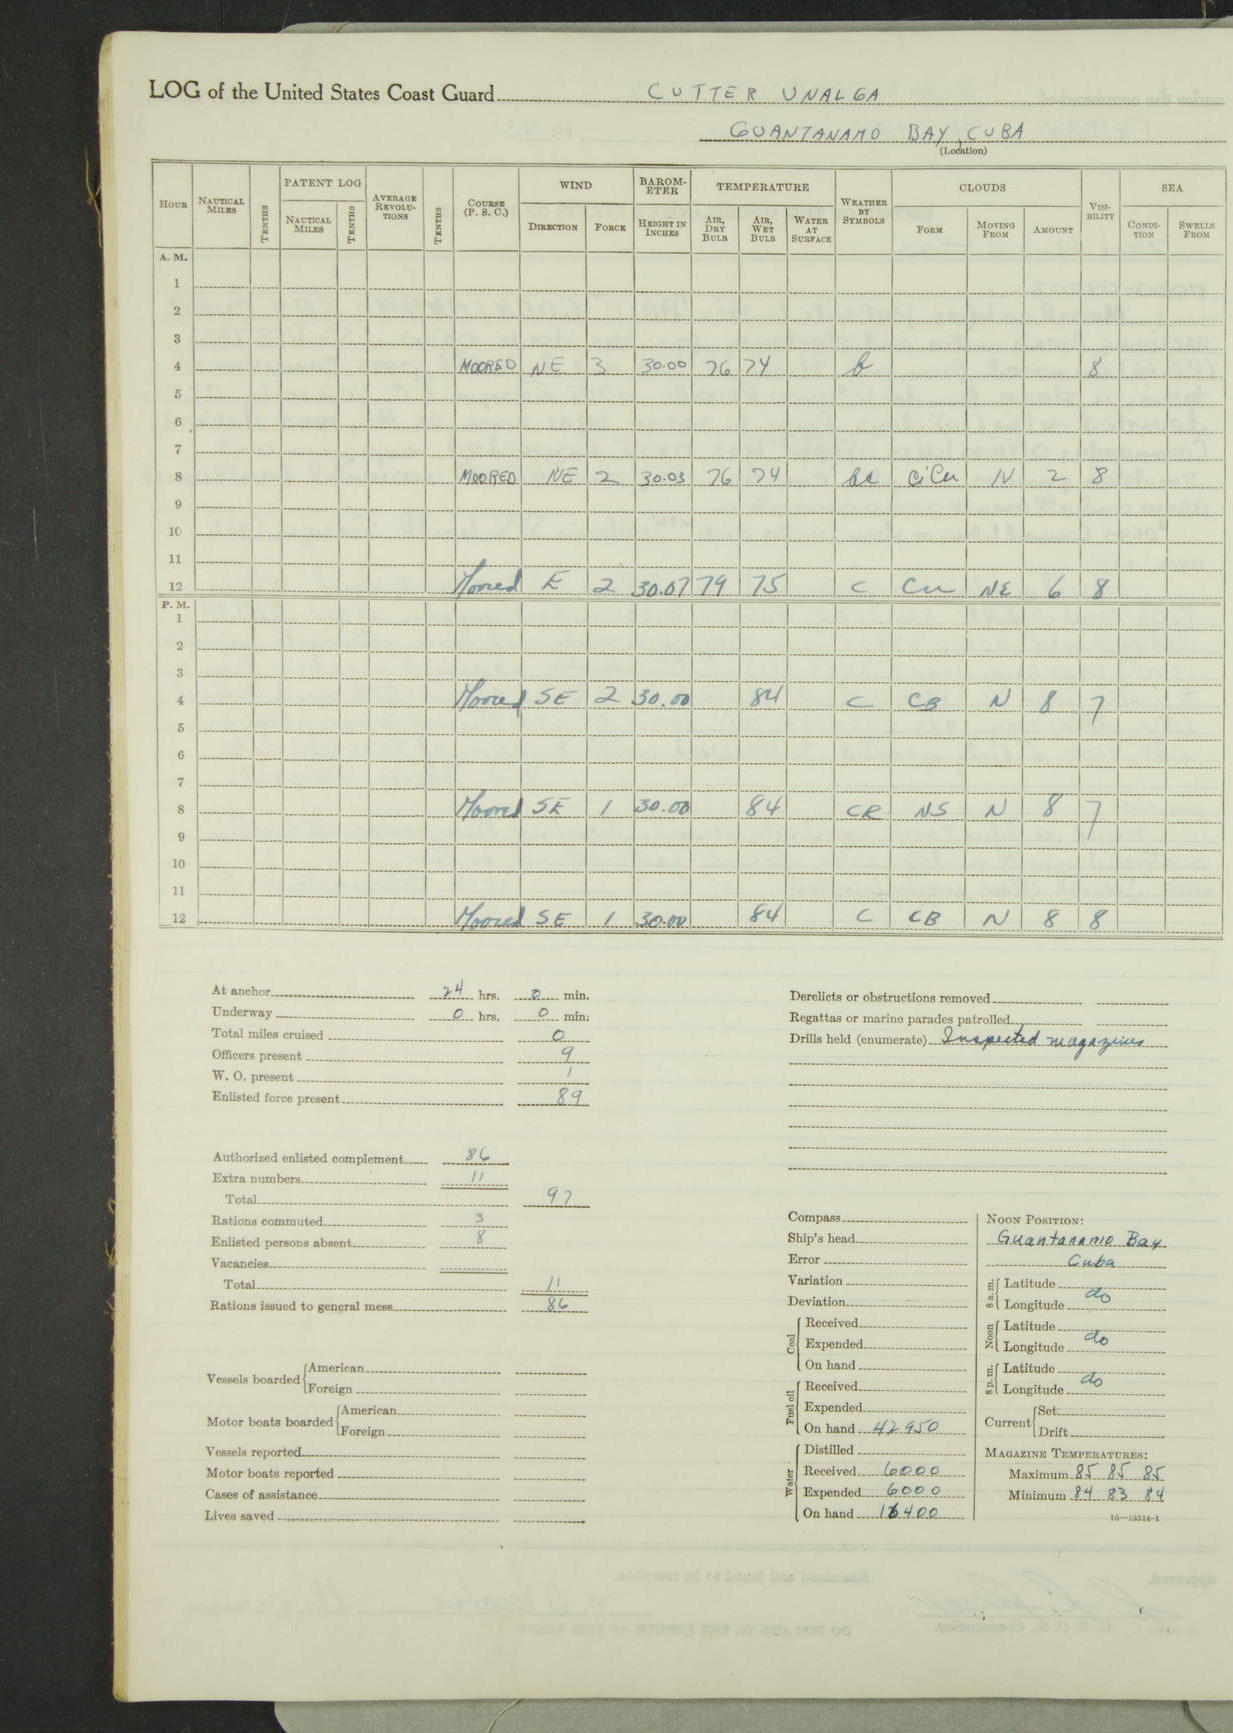 LOG of the United States Coast Guard CUTTER UNALGA
GUANTANAMO BAY, CUBA
(Location)
HOUR NAUTICAL MILES TENTHS PATENT LOG NAUTICAL MILES TENTHS AVERAGE REVOLU-TIONS TENTHS COURSE (P. S. C.) WIND DIRECTION FORCE BAROM-ETER HEIGHT IN INCHES TEMPERATURE AIR, DRY BULB AIR, WET BULB WATER AT SURFACE WEATHER BY SYMBOLS CLOUDS FORM MOVING FROM AMOUNT VISI-BILITY SEA CONDI-TION SWELLS FROM
A. M.
1
2
3
4 MOORED NE 3 30.00 76 74 b 8
5
6
7
8 MOORED NE 2 30.03 76 74 bc CiCu N 2 8
9
10
11
12 Moored E 2 30.07 79 75 C Cu NE 6 8
P. M.
1
2
3
4 Moored SE 2 30.00 84 C CB N 8 7
5
6
7
8 Moored SE 1 30.00 84 CR NS N 8 7
9
10
11
12 Moored SE 1 30.00 84 C CB N 8 8
At anchor 24 hrs. 0 min.
Underway 0 hrs. 0 min.
Total miles cruised 0
Officers present 9
W. O. present 1
Enlisted force present 89
Authorized enlisted complement 86
Extra numbers 11
Total 97
Rations commuted 3
Enlisted persons absent 8
Vacancies
Total 11
Rations issued to general mess 86
Vessels boarded American
Foreign
Motor boats boarded American
Foreign
Vessels reported
Motor boats reported
Cases of assistance
Lives saved
Derelicts or obstructions removed
Regattas or marine parades patrolled
Drills held (enumerate) Inspected magazines
Compass
Ship's head
Error
Variation
Deviation
Coal Received
Expended
On hand
Fuel oil Received
Expended
On hand 42950
Water Distilled
Received 6000
Expended 6000
On hand 16400
NOON POSITION:
Guantanamo Bay
Cuba
8 a.m. Latitude
Longitude do
Noon Latitude
Longitude do
8 p.m. Latitude
Longitude do
Current Set
Drift
MAGAZINE TEMPERATURES:
Maximum 85 85 85
Minimum 84 83 84
16—13314-1